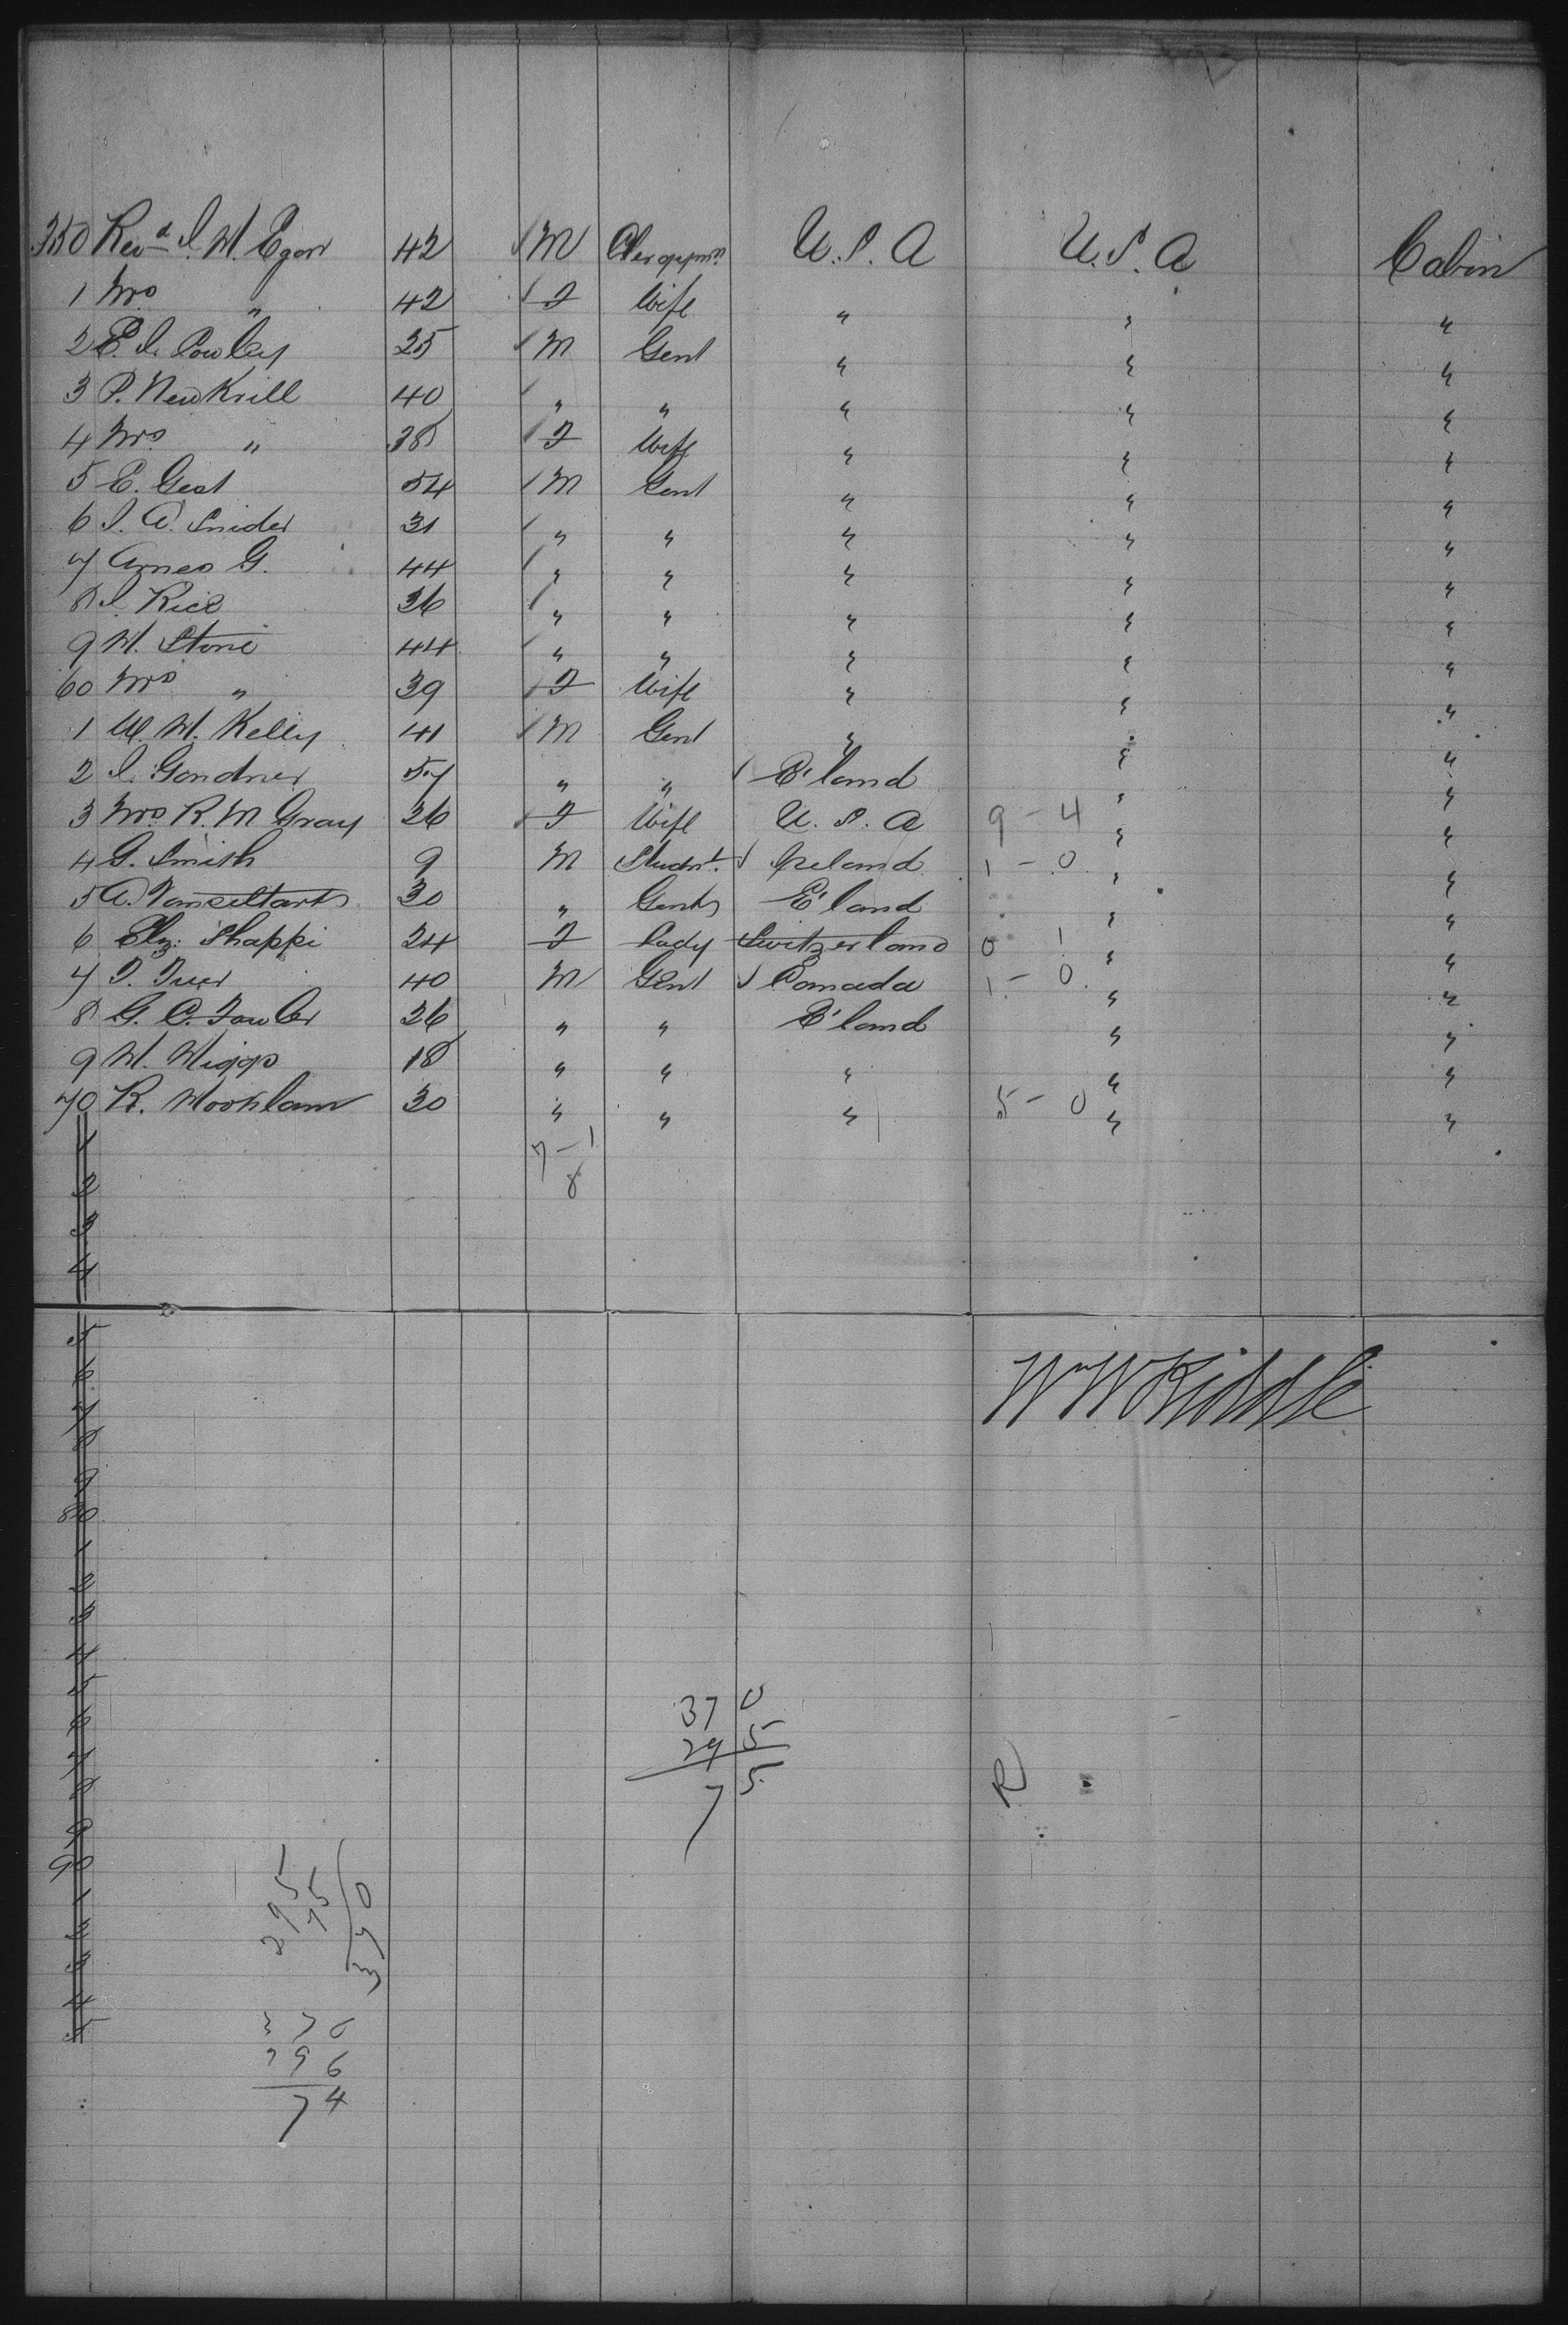 350 Revd I. W. Egan 42 M Clergymn U.S.A U.S.A Cabin
1 Mrs " 42 F Wife " " "
2 E. I. Cowley 25 M Gent " " "
3 P. Newkrill 40 " " " " "
4 Mrs " 38 F Wife " " "
5 E. Geat 54 M Gent " " "
6 I. A. Snider 31 " " " " "
7 Ames G. 44 " " " " "
8 I. Rice 36 " " " " "
9 W. Stone 44 " " " " "
60 Mrs " 39 F Wife " " "
1 W. W. Kelly 41 M Gent " " "
2 I. Gardner 57 " " E'land " "
3 Mrs R. M Gray 26 F Wife U.S.A 9 - 4 " "
4 G. Smith 9 M Student Ireland 1 - 0 " "
5 A. Vansittart 30 " Gents E'land " "
6 Elz: Shappi 24 F Lady Switzerland 0 1 " "
7 I. Tuer 40 M Gent Canada 1 - 0 " "
8 G. C. Fowler 26 " " E'land " "
9 W. Wiggs 18 " " " " "
70 R. Wooklam 30 " " " 5 - 0 " "
1 7 - 1
2 8
3
4
5
6
7
8
9
80
1
2
3
4
5
6
7
8
9
90
1
2
3
4
5
Wm W Riddle
370
295
75
R
295
75
370
370
296
74